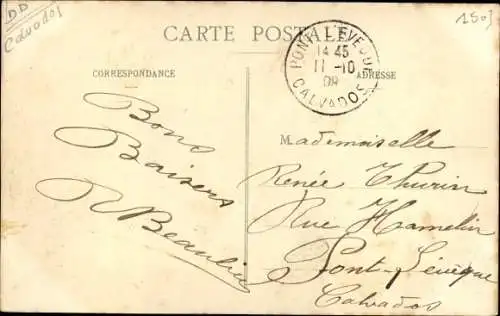 DD
Calvados
150F
CARTE POSTALE
PONT-L'EVEQUE
14 45
11 -10
09
CALVADOS
CORRESPONDANCE
ADRESSE
Bons
Baisers
R Beaulieu
Mademoiselle
Renée Thurin
Rue Hamelin
Pont-Lévêque
Calvados